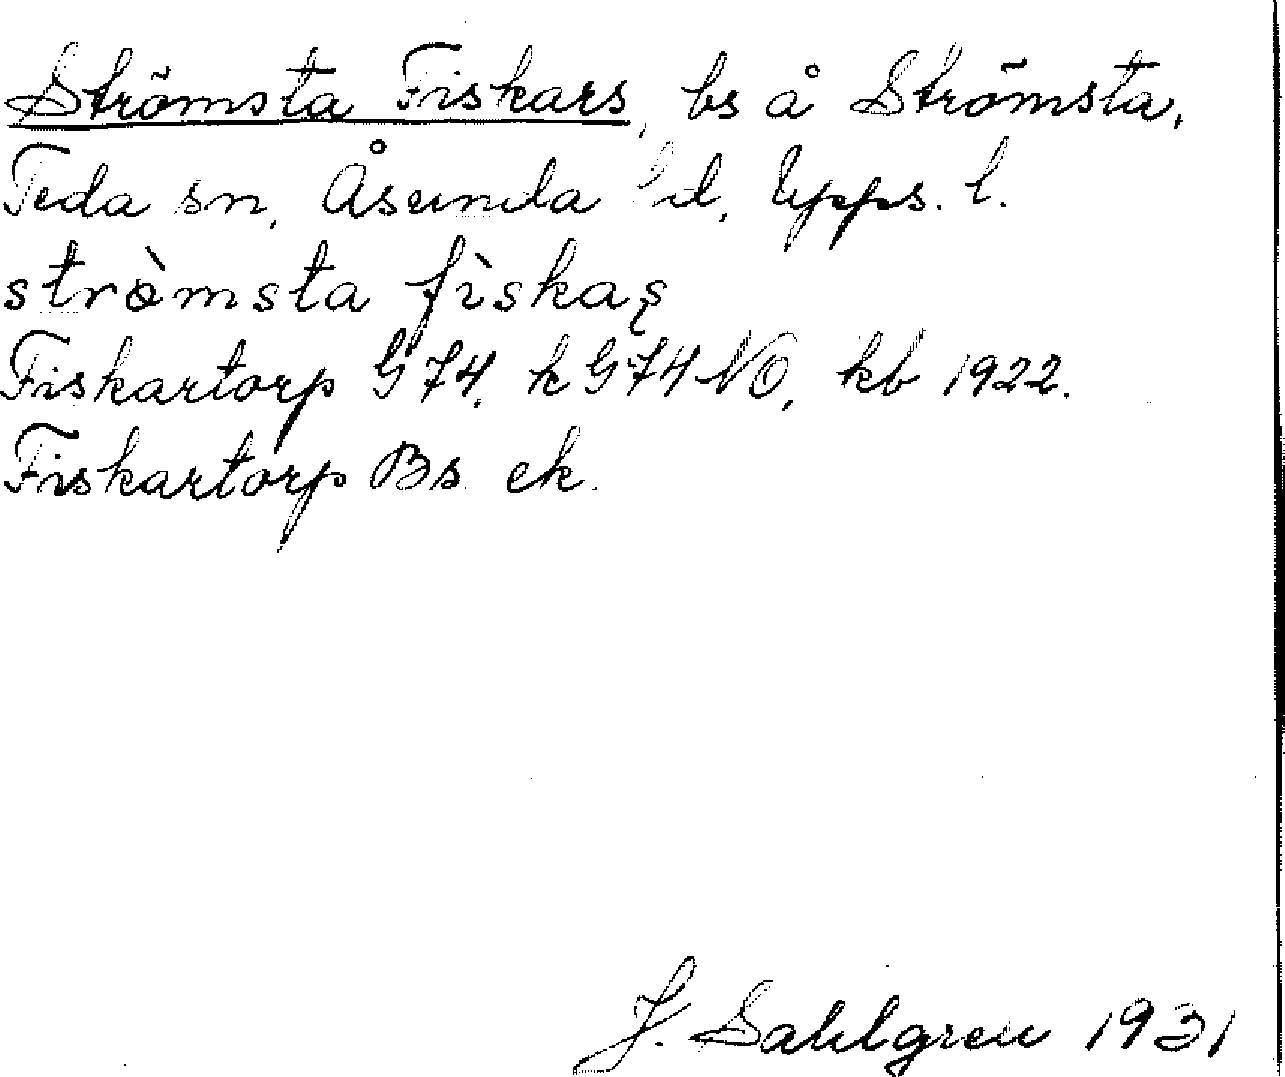 Strömsta Fiskars, bs å Strömsta,
Teda sn, Åsunda hd, Upps. l.
stròmsta fìskaʂ
Fiskartorp G 74, k G 74 NO, kb 1922.
Fiskartorp Bs ek.
J. Sahlgren 1931